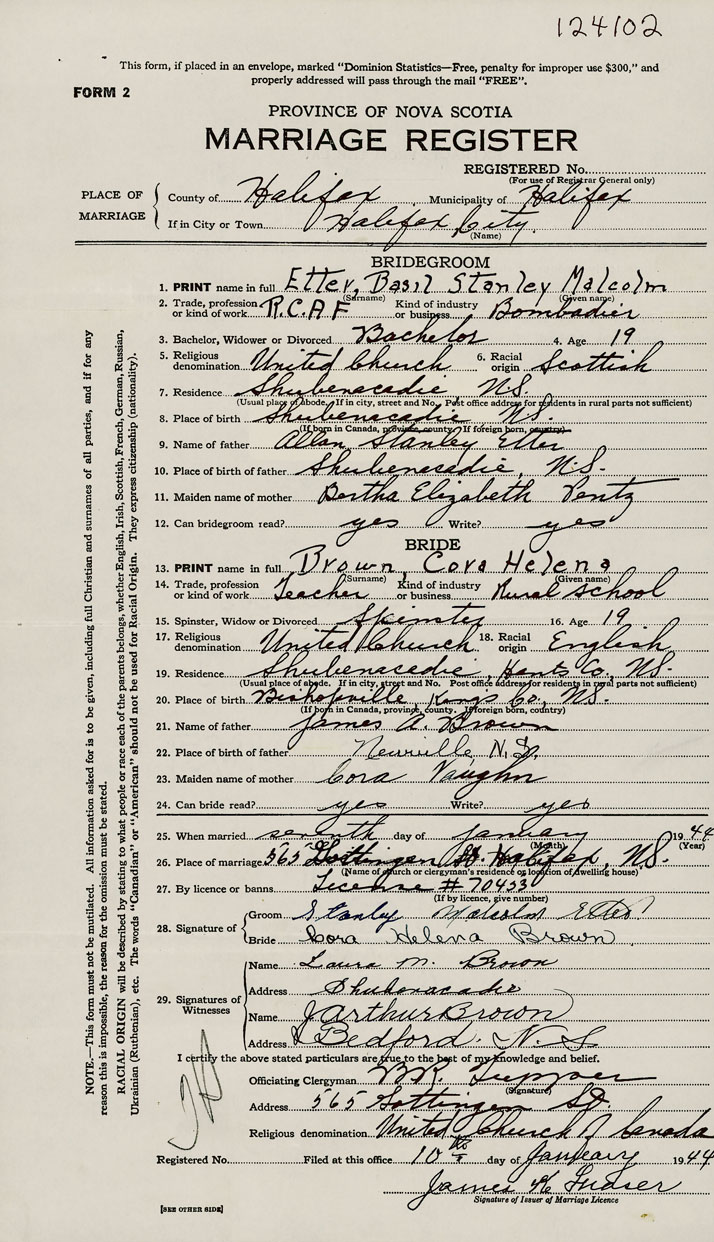 124102
This form, if placed in an envelope, marked "Dominion Statistics—Free, penalty for improper use $300," and
properly addressed will pass through the mail "FREE".
FORM 2
PROVINCE OF NOVA SCOTIA
MARRIAGE REGISTER
REGISTERED No.
(For use of Registrar General only)
PLACE OF MARRIAGE
County of Halifax Municipality of Halifax
If in City or Town Halifax City.
(Name)
BRIDEGROOM
1. PRINT name in full Etter, Basil Stanley Malcolm
(Surname) (Given name)
2. Trade, profession or kind of work R.C.A.F Kind of industry or business Bombadier
3. Bachelor, Widower or Divorced Bachelor 4. Age 19
5. Religious denomination United Church 6. Racial origin Scottish
7. Residence Shubenacadie N.S.
(Usual place of abode. If in city, street and No. Post office address for residents in rural parts not sufficient)
8. Place of birth Shubenacadie N.S.
(If born in Canada, province, county. If foreign born, country)
9. Name of father Allan Stanley Etter
10. Place of birth of father Shubenacadie, N.S.
11. Maiden name of mother Bertha Elizabeth Ventz
12. Can bridegroom read? yes Write? yes
BRIDE
13. PRINT name in full Brown, Cora Helena
(Surname) (Given name)
14. Trade, profession or kind of work Teacher Kind of industry or business Rural School
15. Spinster, Widow or Divorced Spinster 16. Age 19
17. Religious denomination United Church 18. Racial origin English
19. Residence Shubenacadie, Hants Co., N.S.
(Usual place of abode. If in city, street and No. Post office address for residents in rural parts not sufficient)
20. Place of birth Bishopville, Kings Co., N.S.
(If born in Canada, province, county. If foreign born, country)
21. Name of father James A. Brown
22. Place of birth of father Newville, N.S.
23. Maiden name of mother Cora Vaughn
24. Can bride read? yes Write? yes
25. When married seventh day of January 1944
(Month) (Year)
26. Place of marriage 565 Gottingen St. Halifax, N.S.
(Name of church or clergyman's residence or location of dwelling house)
27. By licence or banns License # 70453
(If by licence, give number)
28. Signature of
Groom Stanley Malcolm Etter
Bride Cora Helena Brown
29. Signatures of Witnesses
Name Laura M. Brown
Address Shubenacadie
Name J Arthur Brown
Address Bedford. N.S
I certify the above stated particulars are true to the best of my knowledge and belief.
Officiating Clergyman Tupper
(Signature)
Address 565 Gottingen St
Religious denomination United Church of Canada
Registered No. Filed at this office 10th day of January 1944
James Fraser
Signature of Issuer of Marriage Licence
[SEE OTHER SIDE]
NOTE.—This form must not be mutilated. All information asked for is to be given, including full Christian and surnames of all parties, and if for any
reason this is impossible, the reason for the omission must be stated.
RACIAL ORIGIN will be described by stating to what people or race each of the parents belongs, whether English, Irish, Scottish, French, German, Russian,
Ukrainian (Ruthenian), etc. The words "Canadian" or "American" should not be used for Racial Origin. They express citizenship (nationality).